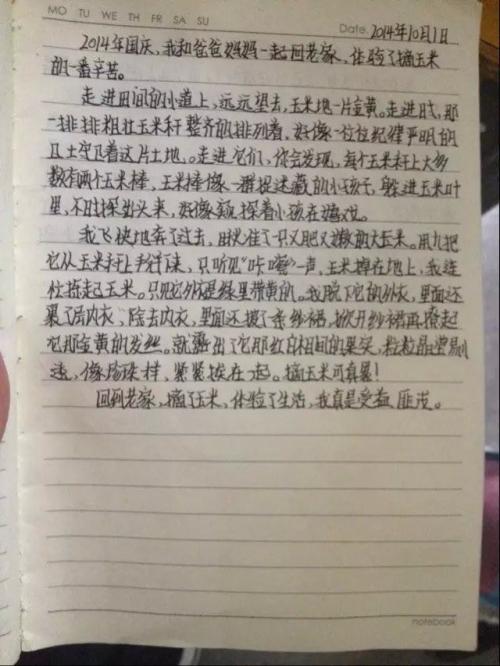 MO TU WE TH FR SA SU
Date. 2014年10月1日
2014年国庆，我和爸爸妈妈一起回老家，体验了摘玉米
的一番辛苦。
走进田间的小道上，远远望去，玉米地一片金黄。走进时，那
一排排粗壮玉米秆整齐的排列着，好像一位位纪律严明的
卫士守卫着这片土地。走进它们，你会发现，每个玉米秆上大多
数有两个玉米棒，玉米棒像一群捉迷藏的小孩子，躲进玉米叶
里，不时探出头来，好像窥探着小孩在嬉戏。
我飞快地奔了过去，瞅准了只又肥又嫩的大玉米。用力把
它从玉米秆上掰下来，只听见“咔嚓”一声，玉米掉在地上，我连
忙捡起玉米。只见它外衣是绿里带黄的。我脱下它的外衣，里面还
裹了层内衣，除去内衣，里面还披了条纱裙，掀开纱裙再撩起
它那金黄的发丝。就露出了它那红白相间的果实，粒粒晶莹剔
透，像珍珠样，紧紧挨在一起。摘玉米可真累！
回到老家，摘了玉米，体验了生活，我真是受益匪浅。
notebook